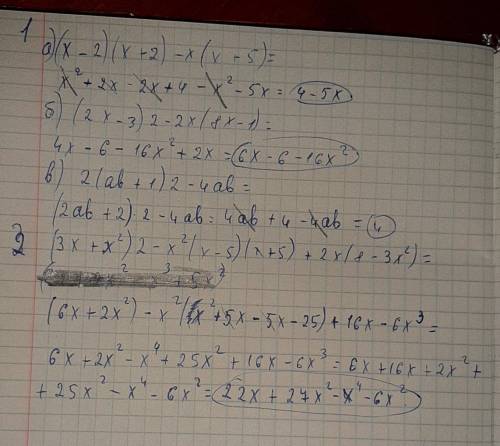 1
а) (x - 2) (x + 2) - x (x + 5) =
x² + 2x - 2x + 4 - x² - 5x = 4 - 5x
б) (2x - 3) 2 - 2x (8x - 1) =
4x - 6 - 16x² + 2x = 6x - 6 - 16x²
в) 2 (ab + 1) 2 - 4ab =
(2ab + 2) 2 - 4ab = 4ab + 4 - 4ab = 4
2 (3x + x²) 2 - x² (x - 5) (x + 5) + 2x (8 - 3x²) =
(6x + 2x²) - x² (x² + 5x - 5x - 25) + 16x - 6x³ =
6x + 2x² - x⁴ + 25x² + 16x - 6x³ = 6x + 16x + 2x² +
+ 25x² - x⁴ - 6x² = 22x + 27x² - x⁴ - 6x²